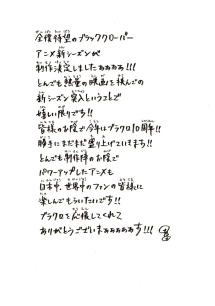 全僕待望のブラッククローバー
アニメ新シーズンが
制作決定しましたぁぁぁぁ!!!
とんでも熱量の映画を挟んでの
新シーズン突入ということで
嬉しい限りです!!
皆様のお陰で今年はブラクロ10周年!!
勝手にまだまだ盛り上げていきます!!
とんでも制作陣のお陰で
パワーアップしたアニメも
日本中、世界中のファンの皆様に
楽しんでもらいたいです!!
ブラクロを応援してくれて
ありがとうございまぁぁぁぁす!!!